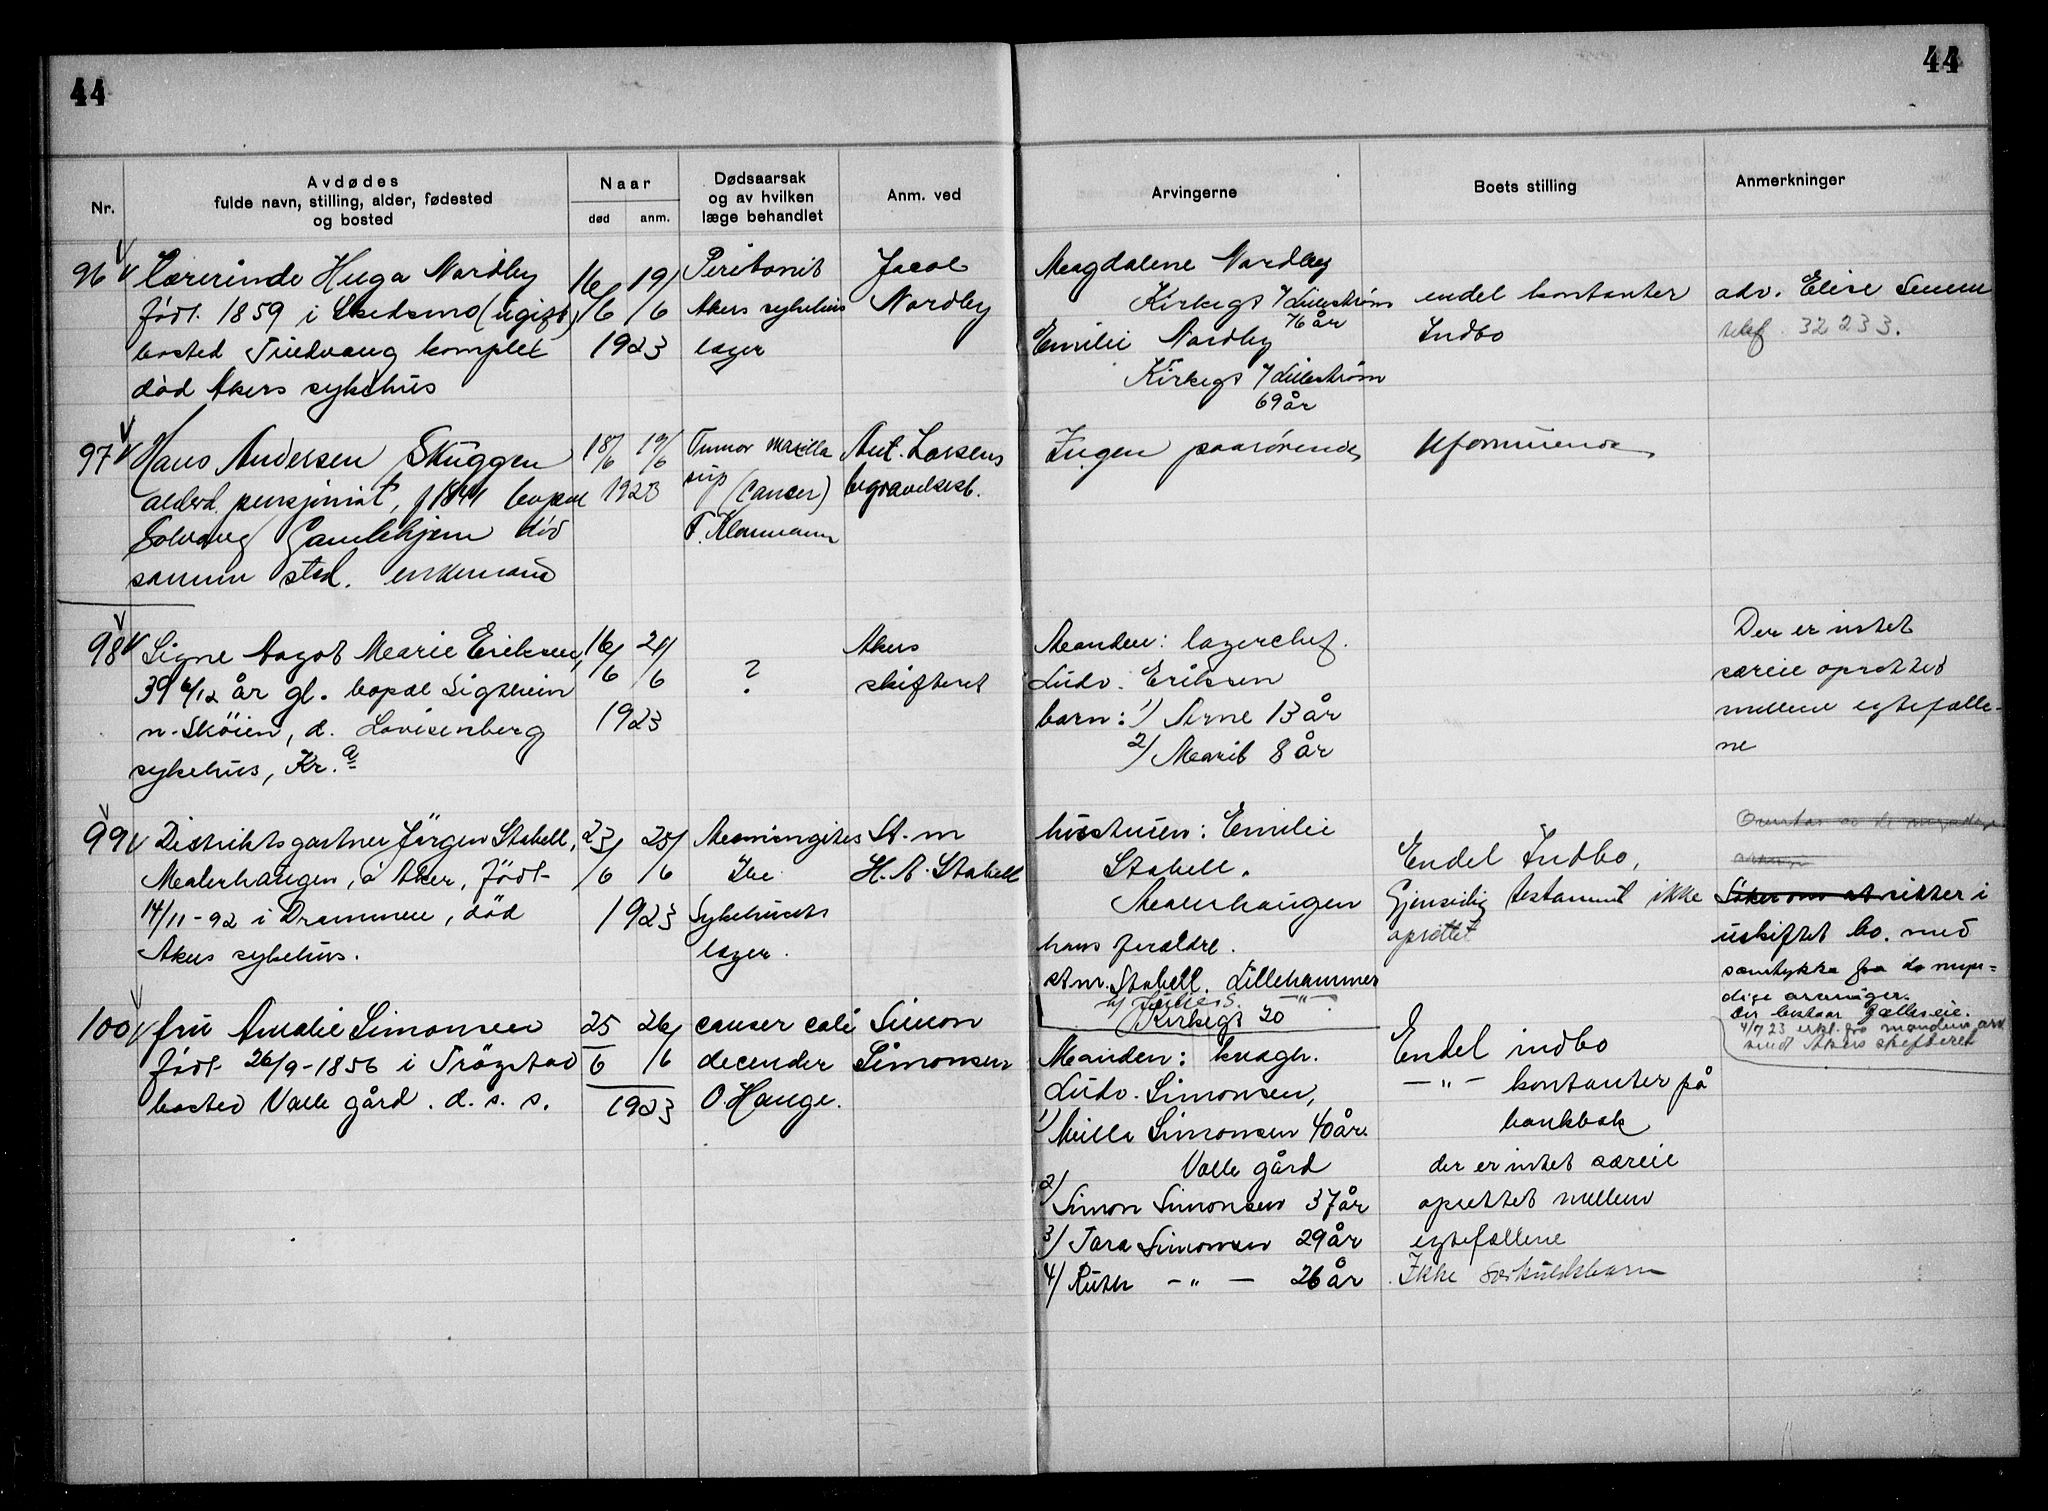 44
44
Nr.
Avdødes
fulde navn, stilling, alder, fødested
og bosted
Naar
død
anm.
Dødsaarsak
og av hvilken
læge behandlet
Anm. ved
Arvingerne
Boets stilling
Anmerkninger
96 Lærerinde Huga Nordby
født. 1859 i Skedsmo (ugift)
bosted Tindvang komplet
død Akers sykehus
16/6 19/6
1923
Peritonit
Akers sykehus
læger
Jacob
Nordby
Magdalene Nordby
Kirkegt 7 Lillestrøm
76 år
Emilie Nordby
Kirkegt 7 Lillestrøm
69 år
endel kontanter
Indbo
adv. Elise
telef. 32233.
97 Hans Andersen Skuggen
alderd. pensjonist, f 1841 bopæl
Solvang Gamlehjem død
samme sted. enkemand
18/6 19/6
1923
Tumor maxilla
sup (Cancer)
F. Klaumann
Ant. Larsens
begravelsesb.
Ingen paarørende
Uformuende
98 Signe Aagot Marie Eriksen,
39 6/12 år gl. bopæl Sigtheim
n. Skøien, d. Lovisenberg
sykehus, Kr.a
16/6 21/6
1923
?
Akers
skifteret
Manden: lagerchef.
Ludv. Eriksen
barn: 1) Arne 13 år
2) Marit 8 år
Der er intet
særeie oprettet
mellem egtefælle-
ne
99 Distriktsgartner Jørgen Stabell,
Malerhaugen, i Aker, født
14/11-92 i Drammen, død
Akers sykehus.
23/6 25/6
1923
Meningites
Tbc
Sykehusets
læger.
St. m
H. A. Stabell
hustruen: Emilie
Stabell.
Malerhaugen
hans forældre.
st m. Stabell. Lillehammer
Kirkegt 20
Endel Indbo,
Gjensidig testament ikke
oprettet
Søker om at sitter i
uskiftet bo. med
samtykke fra de myn-
dige arvinger.
Der bestaar fælleseie.
4/7 23 erkl. fra manden's arv
sendt Akers skifteret
100 fru Amalie Simonsen
født 26/9-1856 i Trøgstad
bosted Valle gård. d. s. s.
25/6 26/6
1923
cancer coli
decender
O. Hauge.
Simon
Simonsen
Manden: kudsk.
Ludv. Simonsen,
1) Milla Simonsen 40 år.
Valle gård
2) Simon Simonsen 37 år
3) Tara Simonsen 29 år
4) Ruth -"- 26 år
Endel indbo
-"- kontanter på
bankbok
der er intet særeie
oprettet mellem
egtefællene
Ikke særkuldsbarn